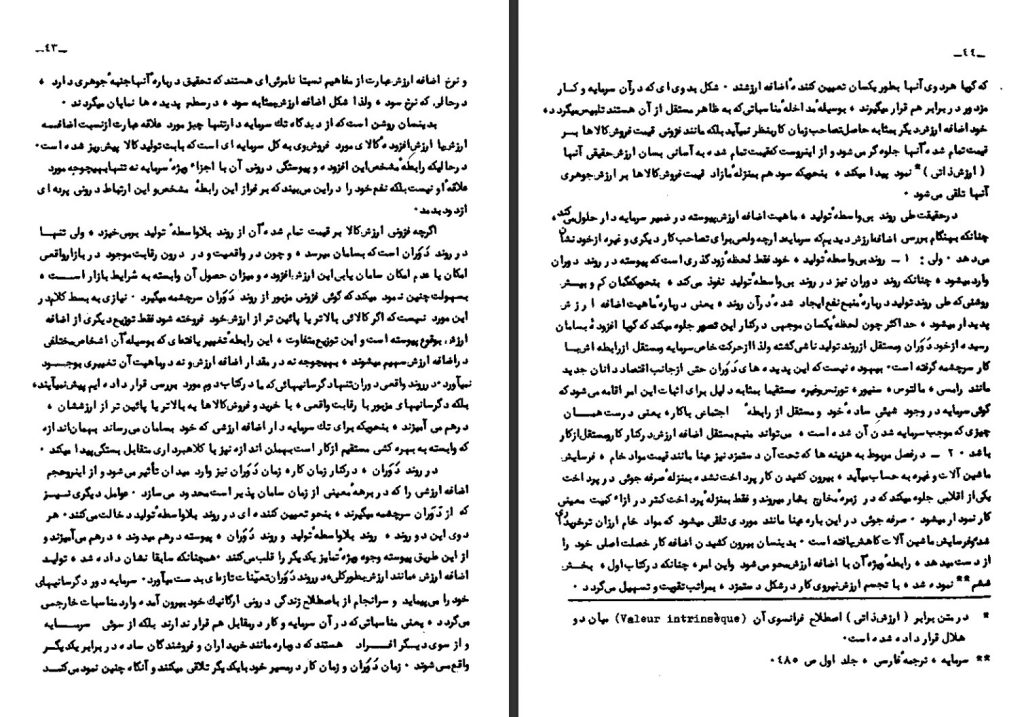 ـ٤٣ـ
و نرخ اضافه ارزش عبارت از مفاهیم نسبتا نامرئی ای هستند که تحقیق درباره آنها جنبهٔ جوهری دارد ٠
درحالی که نرخ سود ٠ ولذا شکل اضافه ارزش بمثابه سود ٠ درسطح پدیده ها نمایان میگردند ٠
بدینسان روشن است که از دیدگاه تك سرمایه دار تنها چیز مورد علاقه عبارت ازنسبت اضافه
ارزش یا ارزش افزودهٔ کالای مورد فروش وی به کل سرمایه ای است که بابت تولید کالا پیش ریز شده است ٠
درحالیکه رابطهٔ مشخص این افزوده و پیوستگی درونی آن با اجزاء ویژه سرمایه نه تنها بهیچوجه مورد
علاقهٔ او نیست بلکه نفع خود را دراین می بیند که بر فراز این رابطهٔ مشخص و این ارتباط درونی پرده ای
ازدود بدمد ٠
اگرچه فزونی ارزش کالا بر قیمت تمام شدهٔ آن از روند بلاواسطهٔ تولید برمی خیزد ٠ ولی تنها
در روند دَوَران است که بسامان میرسد ٠ و چون در واقعیت و در درون رقابت موجود در بازار واقعی
امکان یا عدم امکان سامان یابی این ارزش افزوده و میزان حصول آن وابسته به شرایط بازار است ٠
بسهولت چنین نمود میکند که گوئی فزونی مزبور از روند دَوَران سرچشمه میگیرد ٠ نیازی به بسط کلام در
این مورد نیست که اگر کالائی بالاتر یا پائین تر از ارزش خود فروخته شود فقط توزیع دیگری از اضافه
ارزش بوقوع پیوسته است و این توزیع متفاوت ٠ این رابطهٔ تغییر یافته ای که بوسیله آن اشخاص مختلفی
دراضافه ارزش سهیم میشوند ٠ بهیچوجه نه در مقدار اضافه ارزش و نه درماهیت آن تغییری بوجود
نمیآورد ٠ در روند واقعی دوران تنها دگرسانیهائی که ما در کتاب دوم مورد بررسی قرار داده ایم پیش نمیآیند ٠
بلکه دگرسانیهای مزبور با رقابت واقعی ٠ با خرید و فروش کالاها به بالاتر یا پائین تر از ارزششان ٠
درهم می آمیزند ٠ بنحویکه برای تك سرمایه دار اضافه ارزشی که خود بسامان می رساند بهمان اندازه
که وابسته به بهره کشی مستقیم ازکار است بهمان اندازه نیز با کلاهبرداری متقابل بستگی پیدا میکند ٠
در روند دَوَران ٠ درکنار زمان کار ٠ زمان دَوَران نیز وارد میدان تأثیر می شود و ازاینرو حجم
اضافه ارزشی را که در برههٔ معینی از زمان سامان پذیر است محدود می سازد ٠ عوامل دیگری نیز
که از دَوَران سرچشمه میگیرند ٠ بنحو تعیین کننده ای در روند بلاواسطهٔ تولید دخالت می کنند ٠ هر
دوی این دو روند ٠ روند بلاواسطهٔ تولید و روند دَوَران ٠ پیوسته درهم میدوند ٠ درهم می آمیزند و
از این طریق پیوسته وجوه ویژهٔ تمایز یکدیگر را قلب می کنند ٠ همچنانکه سابقا نشان داده شد ٠ تولید
اضافه ارزش مانند ارزش بطورکلی در روند دَوَران تعیّنات تازه ای بدست میآورد ٠ سرمایه دور دگرسانیهای
خود را می پیماید و سرانجام از باصطلاح زندگی درونی ارگانیك خود بیرون آمده وارد مناسبات خارجی
می گردد ٠ یعنی مناسباتی که در آن سرمایه و کار در مقابل هم قرار ندارند بلکه از سوئی سرمایه
و از سوی دیگر افراد هستند که دوباره مانند خریداران و فروشندگان ساده در برابر یکدیگر
واقع می شوند ٠ زمان دَوَران و زمان کار در مسیر خود با یکدیگر تلاقی میکنند و آنگاه چنین نمود می کنند
ـ٤٤ـ
که گویا هردوی آنها بطور یکسان تعیین کنندهٔ اضافه ارزشند ٠ شکل بدوی ای که درآن سرمایه و کار
مزدور در برابر هم قرار میگیرند ٠ بوسیلهٔ مداخلهٔ مناسباتی که به ظاهر مستقل از آن هستند تلبیس میگردد ٠
خود اضافه ارزش دیگر بمثابه حاصل تصاحب زمان کار بنظر نمیآید بلکه مانند فزونی قیمت فروش کالاها بر
قیمت تمام شدهٔ آنها جلوه گر می شود و از اینروست که قیمت تمام شده به آسانی بسان ارزش حقیقی آنها
( ارزش ذاتی )* نمود پیدا میکند ٠ بنحویکه سود هم بمنزلهٔ مازاد قیمت فروش کالاها بر ارزش جوهری
آنها تلقی می شود ٠
درحقیقت طی روند بی واسطهٔ تولید ٠ ماهیت اضافه ارزش پیوسته در ضمیر سرمایه دار حلول می کند ٠
چنانکه بهنگام بررسی اضافه ارزش دیدیم که سرمایه دار چه ولعی برای تصاحب کار دیگری و غیره ازخود نشان
می دهد ٠ ولی : ١ ـ روند بی واسطهٔ تولید ٠ خود فقط لحظهٔ زودگذری است که پیوسته در روند دوران
وارد میشود ٠ چنانکه روند دوران نیز در روند بی واسطهٔ تولید نفوذ می کند ٠ بنحویکه گمان کم و بیش
روشنی که طی روند تولید دربارهٔ منبع نفع ایجاد شدهٔ درآن روند ٠ یعنی دربارهٔ ماهیت اضافه ارزش
پدیدار میشود ٠ حداکثر چون لحظهٔ یکسان موجهی درکنار این تصور جلوه میکند که گویا افزودهٔ بسامان
رسیده ازخود دَوَران و مستقل از روند تولید ناشی گشته ولذا ازحرکت خاص سرمایه و مستقل از رابطه اش با
کار سرچشمه گرفته است ٠ بیهوده نیست که این پدیده های دَوَران حتی ازجانب اقتصاددانان جدید
مانند رامسی ٠ مالتوس ٠ سنیور ٠ تورنس وغیره مستقیما بمثابه دلیل برای اثبات این امر اقامه می شود که
گوئی سرمایه در وجود شیئی سادهٔ خود و مستقل از رابطهٔ اجتماعی باکار ٠ یعنی درست همان
چیزی که موجب سرمایه شدن آن شده است ٠ می تواند منبع مستقل اضافه ارزش درکنار کار و مستقل ازکار
باشد ٠ ٢ ـ در فصل مربوط به هزینه ها که تحت آن دستمزد نیز عینا مانند قیمت مواد خام ٠ فرسایش
ماشین آلات وغیره به حساب میآید ٠ بیرون کشیدن کار پرداخت نشده بمنزله صرفه جوئی در پرداخت
یکی از اقلامی جلوه میکند که در زمرهٔ مخارج بشمار میروند و فقط بمنزلهٔ پرداخت کمتر در ازاء کمیت معینی
کار نمودار میشود ٠ صرفه جوئی در این باره عینا مانند موردی تلقی میشود که مواد خام ارزان ترخریداری
شده و فرسایش ماشین آلات کاهش یافته است ٠ بدینسان بیرون کشیدن اضافه کار خصلت اصلی خود را
از دست میدهد ٠ رابطه ویژهٔ آن با اضافه ارزش محو می شود واین امر ٠ چنانکه درکتاب اول ٠ بخش
ششم** نموده شد ٠ با تجسم ارزش نیروی کار در شکل دستمزد ٠ بمراتب تقویت و تسهیل می گردد ٠
* درمتن برابر ( ارزش ذاتی ) اصطلاح فرانسوی آن (Valeur intrinsèque) میان دو
هلال قرار داده شده است٠
** سرمایه ٠ ترجمهٔ فارسی ٠ جلد اول ص ٤٨٥٠